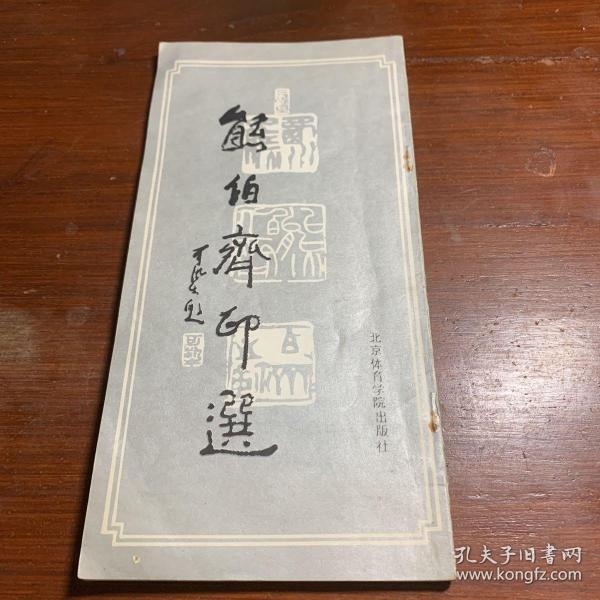 熊伯齊印選
可染題
北京体育学院出版社
孔夫子旧书网
www.kongfz.com